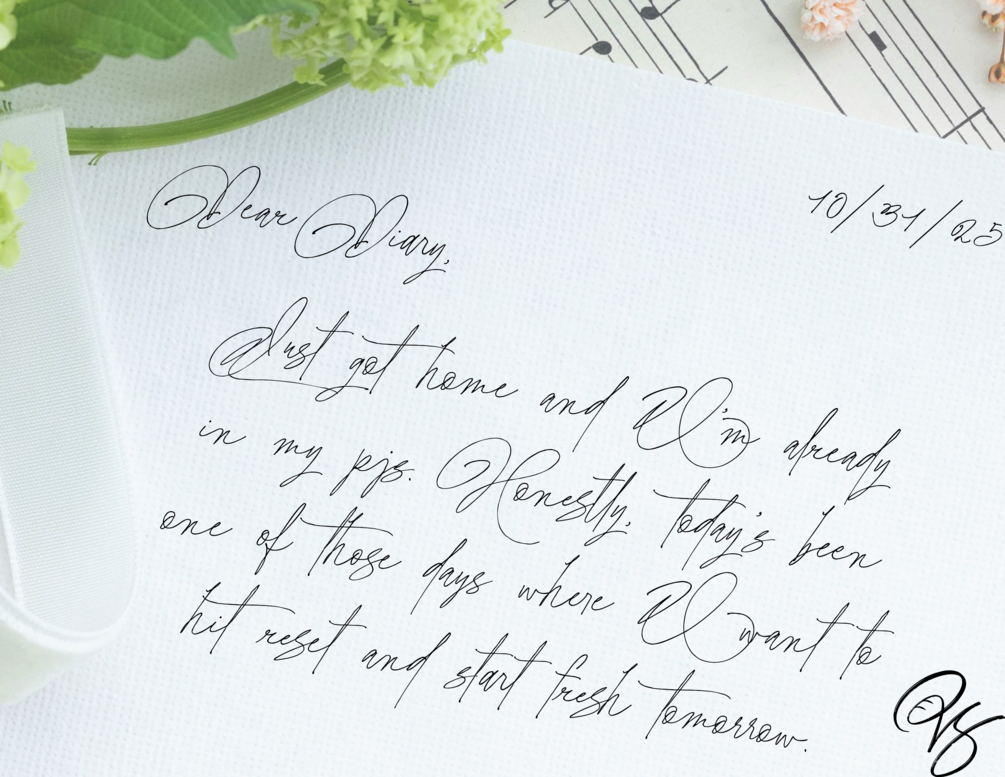 10/31/25
Dear Diary,
Just got home and I'm already
in my pjs. Honestly, today's been
one of those days where I want to
hit reset and start fresh tomorrow.